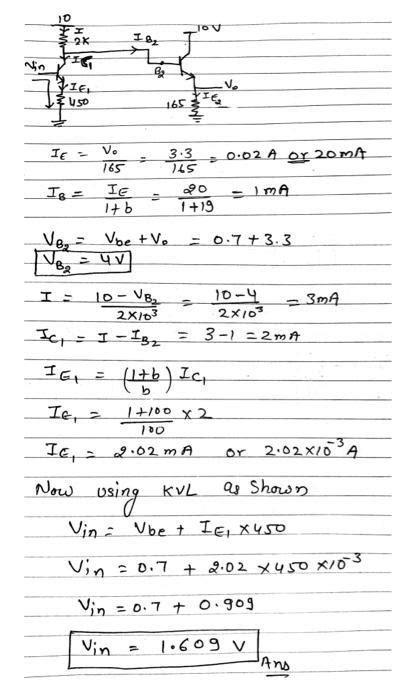 10
I
2K
I_B2
10V
Vin
I_C1
B2
I_E1
450
Vo
I_E2
165
I_E = Vo/165 = 3.3/165 = 0.02 A or 20 mA
I_B = I_E/1+b = 20/1+19 = 1 mA
V_B2 = Vbe + Vo = 0.7 + 3.3
V_B2 = 4V
I = 10 - V_B2/2×10³ = 10-4/2×10³ = 3mA
I_C1 = I - I_B2 = 3-1 = 2mA
I_E1 = (1+b/b) I_C1
I_E1 = 1+100/100 × 2
I_E1 = 2.02 mA or 2.02×10⁻³ A
Now using KVL as Shown
Vin = Vbe + I_E1 × 450
Vin = 0.7 + 2.02 × 450 × 10⁻³
Vin = 0.7 + 0.909
Vin = 1.609 V
Ans